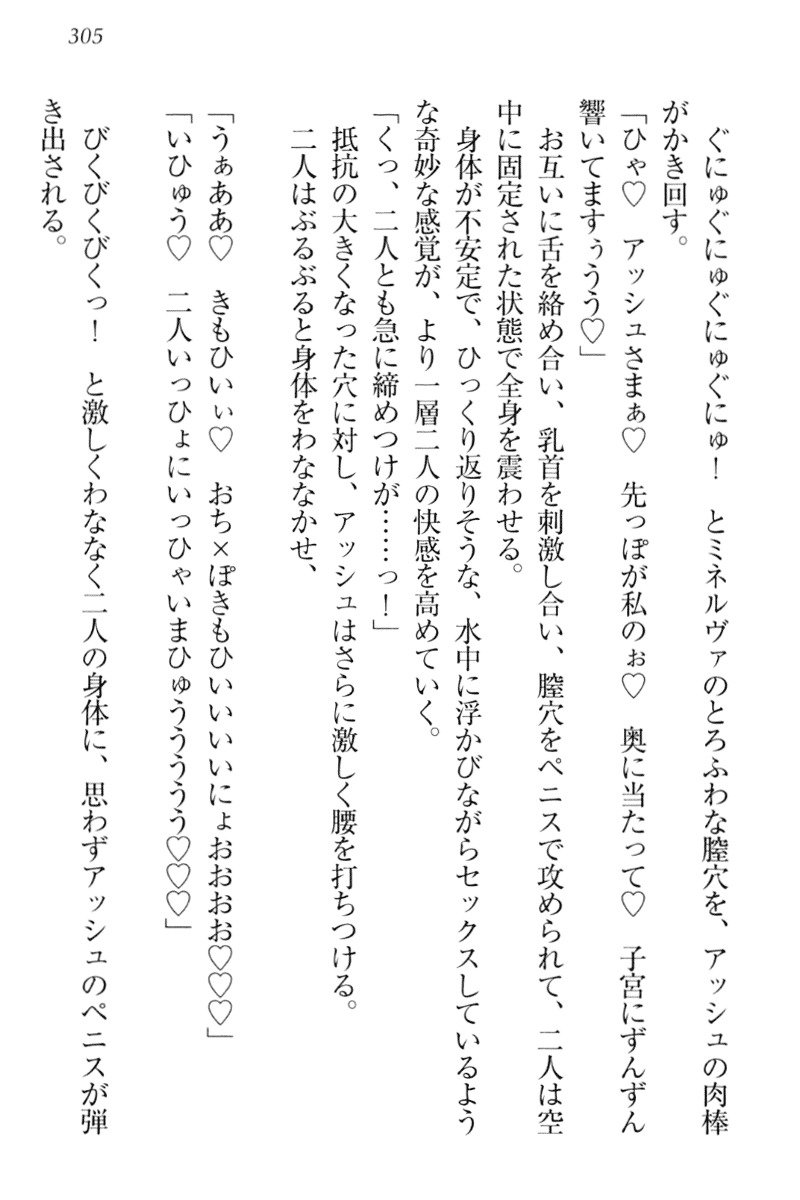 305
ぐにゅぐにゅぐにゅぐにゅ！　とミネルヴァのとろふわな膣穴を、アッシュの肉棒
がかき回す。
「ひゃ♡　アッシュさまぁ♡　先っぽが私のぉ♡　奥に当たって♡　子宮にずんずん
響いてますぅうう♡」
お互いに舌を絡め合い、乳首を刺激し合い、膣穴をペニスで攻められて、二人は空
中に固定された状態で全身を震わせる。
身体が不安定で、ひっくり返りそうな、水中に浮かびながらセックスしているよう
な奇妙な感覚が、より一層二人の快感を高めていく。
「くっ、二人とも急に締めつけが……っ！」
抵抗の大きくなった穴に対し、アッシュはさらに激しく腰を打ちつける。
二人はぶるぶると身体をわななかせ、
「うぁああ♡　きもひいぃ♡　おち×ぽきもひいいいいにょおおおお♡♡♡」
「いひゅう♡　二人いっひょにいっひゃいまひゅううううう♡♡♡」
びくびくびくっ！　と激しくわななく二人の身体に、思わずアッシュのペニスが弾
き出される。